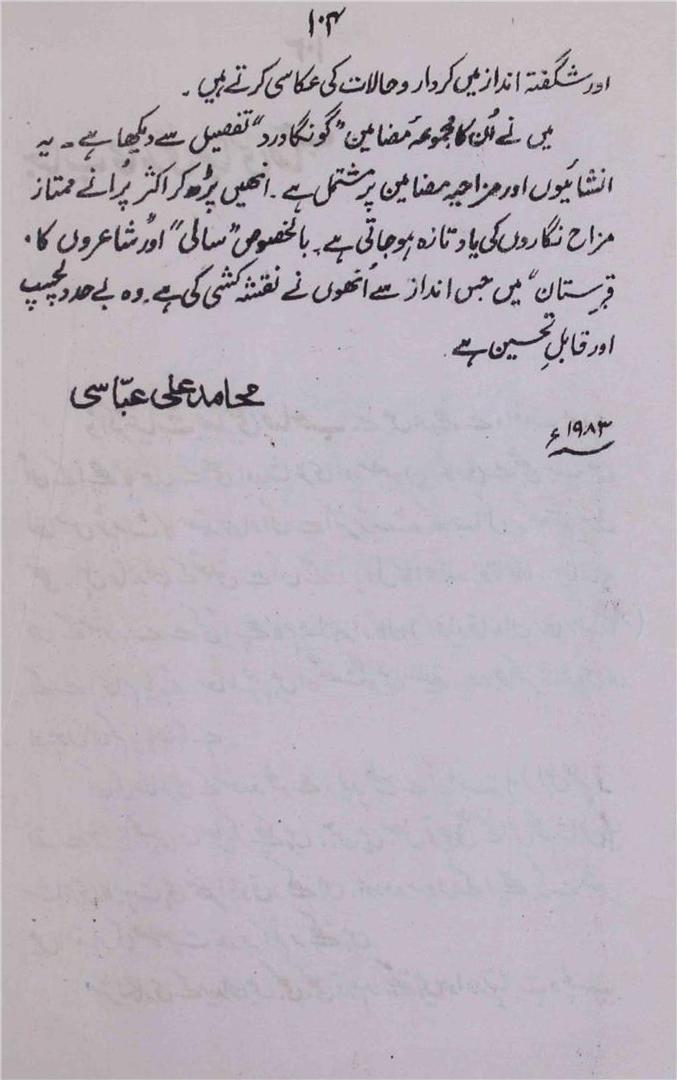 ۱۰۴
اور شگفتہ انداز میں کردار و حالات کی عکاسی کرتے ہیں ۔
میں نے اُن کا مجموعۂ مضامین ”گونگا درد“ تفصیل سے دیکھا ہے ۔ یہ
انشائیوں اور مزاحیہ مضامین پر مشتمل ہے ۔ انھیں پڑھ کر اکثر پُرانے ممتاز
مزاح نگاروں کی یاد تازہ ہو جاتی ہے ۔ بالخصوص ”سالی“ اور شاعروں کا
قبرستان“ میں جس انداز سے اُنھوں نے نقشہ کشی کی ہے ۔ وہ بے حد دلچسپ
اور قابلِ تحسین ہے
محامد علی عبّاسی
۱۹۸۳ء